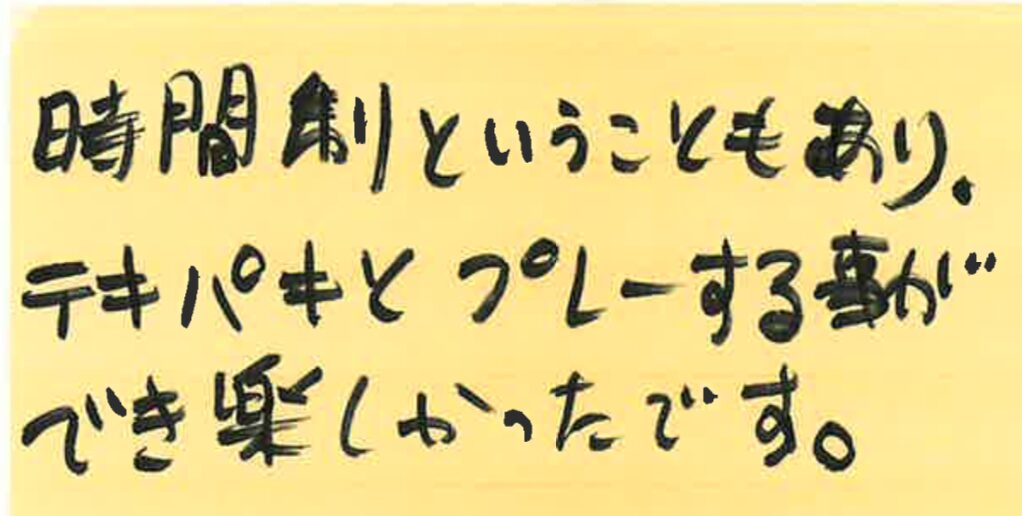 時間制ということもあり、
テキパキとプレーする事が
でき楽しかったです。